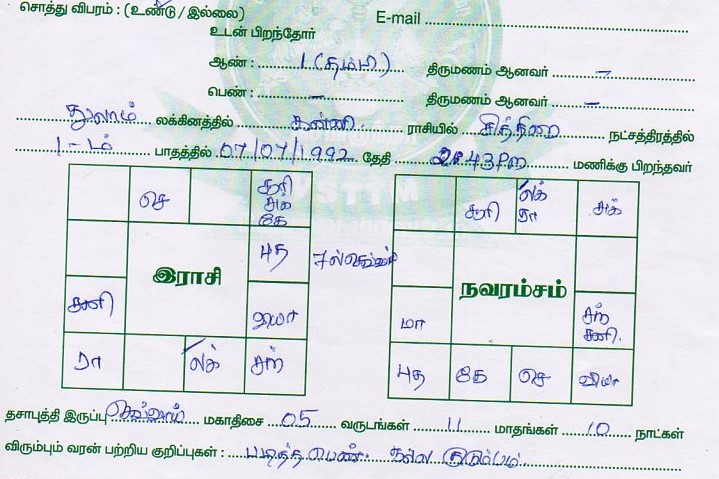 சொத்து விபரம் : (உண்டு / இல்லை)
E-mail
உடன் பிறந்தோர்
ஆண் : 1 (தம்பி) திருமணம் ஆனவர் –
பெண் : – திருமணம் ஆனவர் –
துலாம் லக்கினத்தில் கன்னி ராசியில் சித்திரை நட்சத்திரத்தில்
1-ம் பாதத்தில் 07/07/1992 தேதி 2:43PM மணிக்கு பிறந்தவர்
செ
சூரி
சுக்
கே
புத
இராசி
சனி
வியா
ரா
லக்
சந்
7ல் செவ்வாய்
சூரி
லக்
ரா
சுக்
நவரம்சம்
மா
சந்
சனி.
புத
கே
செ
வியா
தசாபுத்தி இருப்பு செவ்வாய் மகாதிசை 05 வருடங்கள் 11 மாதங்கள் 10 நாட்கள்
விரும்பும் வரன் பற்றிய குறிப்புகள் : படித்த பெண். நல்ல குடும்பம்.